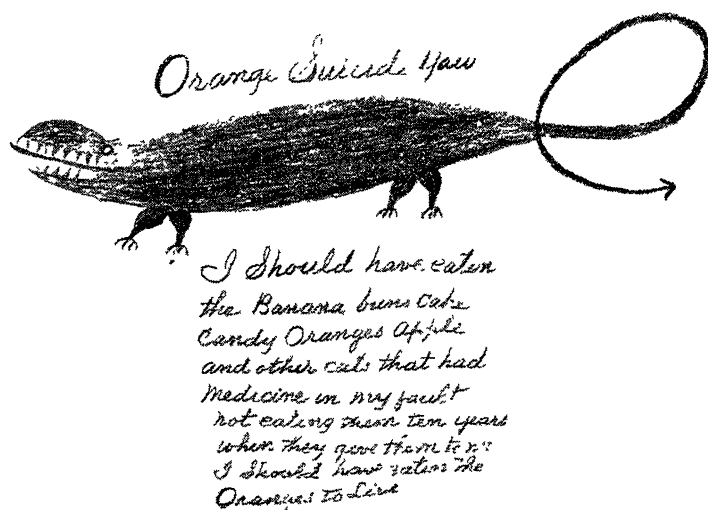 Orange Suicide Yaw
I Should have eaten
the Banana buns Cake
Candy Oranges Apple
and other eats that had
Medicine in my fault
not eating them ten years
when they give them to
I Should have eaten the
Oranges to Live